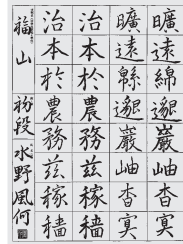 曠遠綿邈巌岫杳冥
曠遠緜邈巖岫杳冥
治本於農務茲稼穡
治本扵農務茲稼穡
福山 初段 水野風何